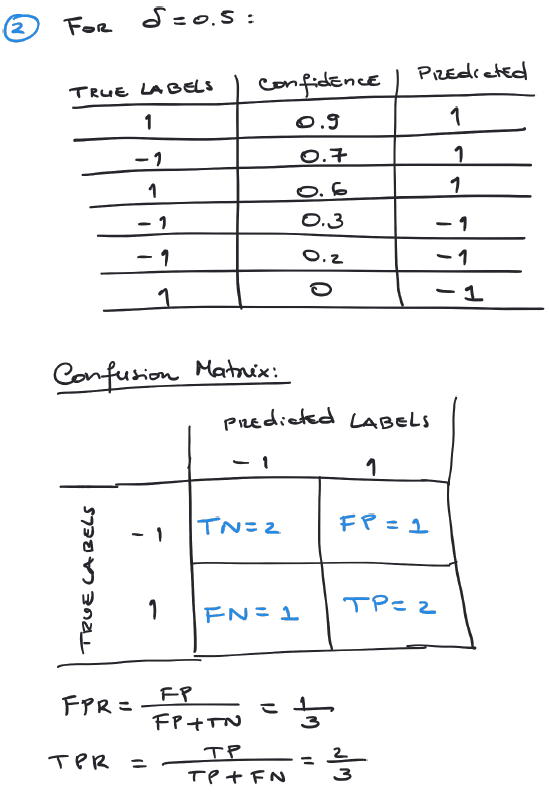 2 FOR δ = 0.5 :
TRUE LABELS | Confidence | Predicted
1 | 0.9 | 1
-1 | 0.7 | 1
1 | 0.6 | 1
-1 | 0.3 | -1
-1 | 0.2 | -1
1 | 0 | -1
Confusion Matrix:
Predicted LABELS
-1 1
TRUE LABELS
-1 TN = 2 FP = 1
1 FN = 1 TP = 2
FPR = FP / FP + TN = 1 / 3
TPR = TP / TP + FN = 2 / 3